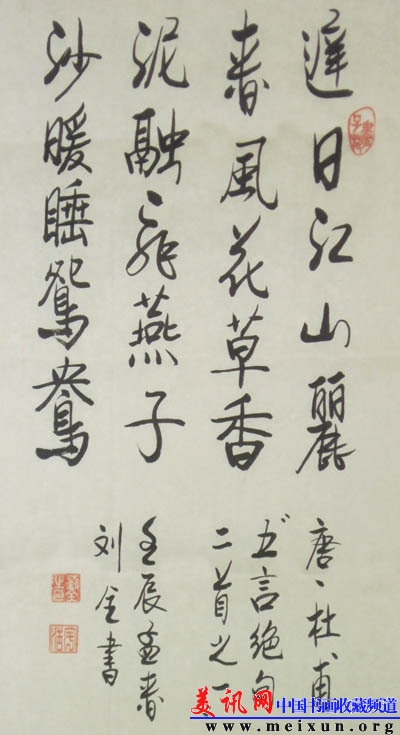 遲日江山麗
春風花草香
泥融飛燕子
沙暖睡鴛鴦
唐、杜甫
五言絶句
二首之一
壬辰孟春
刘書
美讯网 中国书画收藏频道
www.meixun.org